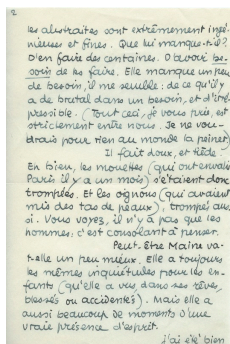 2
les abstraites sont extrêmement ingé-
nieuses et fines. Que lui manque-t-il?
D'en faire des centaines. D'avoir be-
soin de les faire. Elle manque un peu
de besoin, il me semble: de ce qu'il y
a de brutal dans un besoin, et d'irré-
pressible. (Tout ceci, je vous prie, est
strictement entre nous. Je ne vou-
drais pour rien au monde la peiner)
Il fait doux, et tiède.
Eh bien, les mouettes (qui ont envahi
Paris il y a un mois) s'étaient donc
trompées. Et les oignons (qui avaient
mis des tas de peaux), trompés aus
si. Vous voyez, il n'y a pas que les
hommes, c'est consolant à penser.
Peut-être Maine va-
t-elle un peu mieux. Elle a toujours
les mêmes inquiétudes pour les en-
fants (qu'elle a vus, dans ses rêves,
blessés ou accidentés). Mais elle a
aussi beaucoup de moments d'une
vraie présence d'esprit.
j'ai été bien